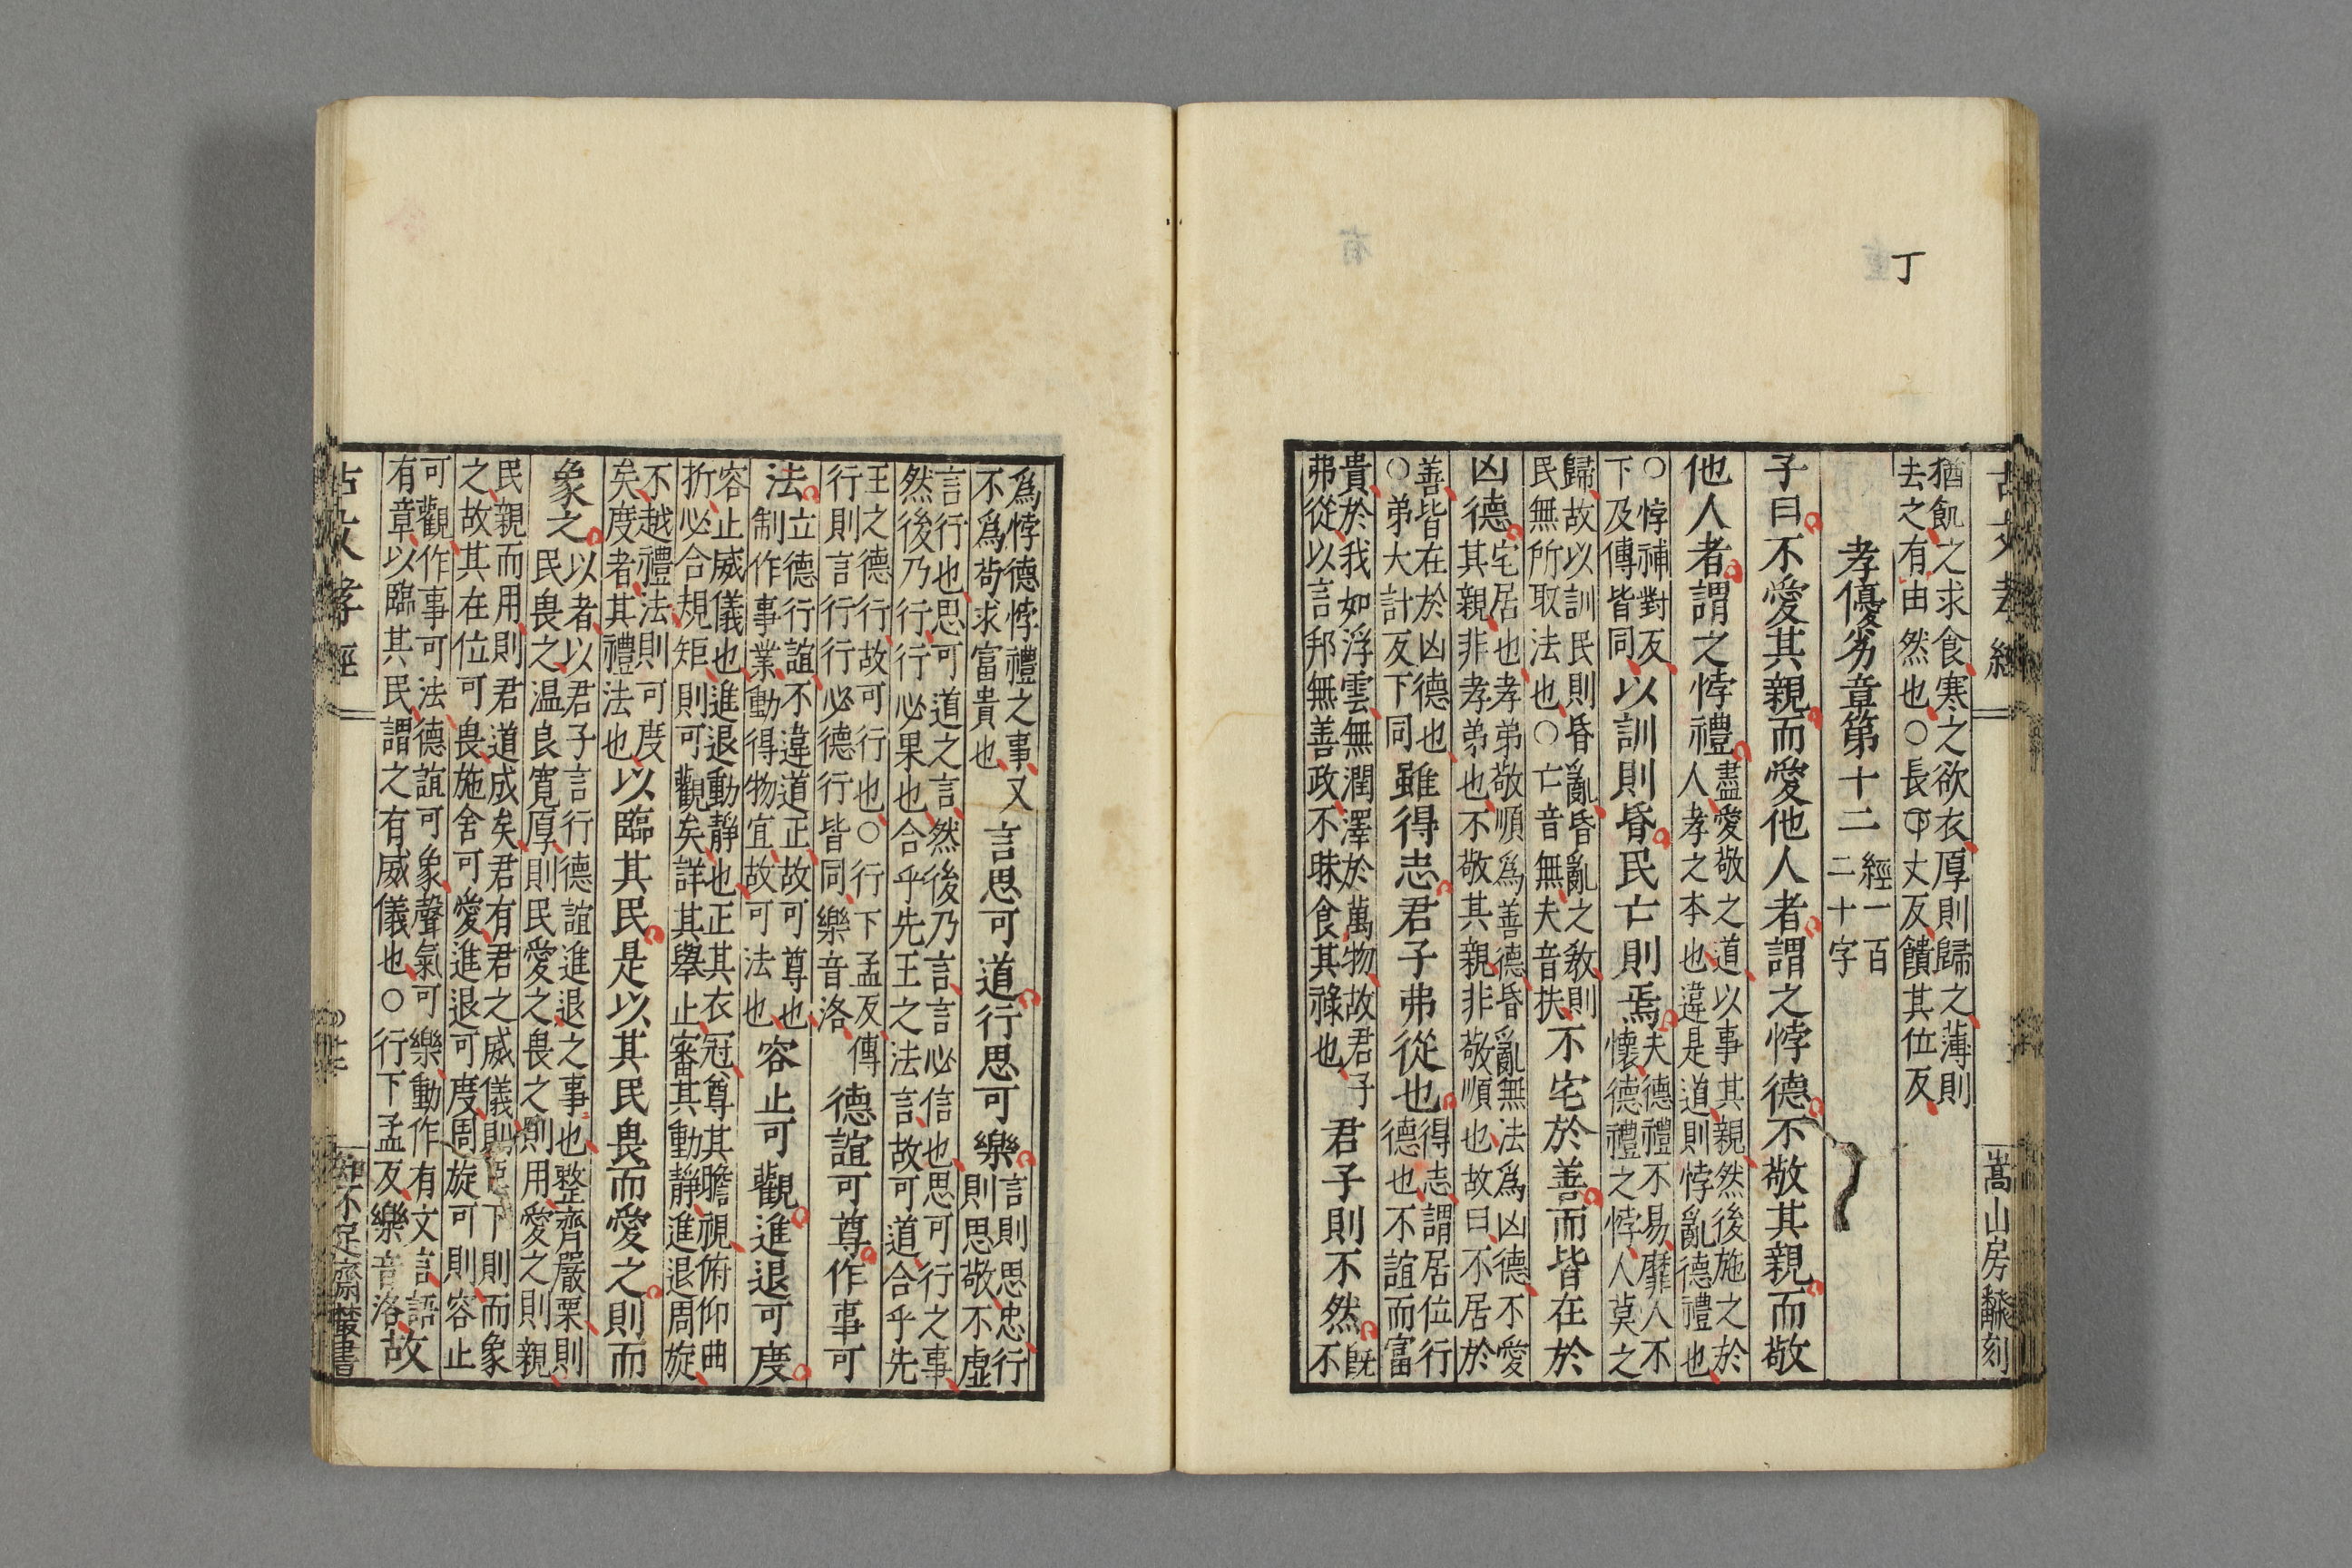 丁
古文孝經
嵩山房飜刻
猶飢之求食寒之欲衣厚則歸之薄則
去之有由然也○長丈反饋其位反
孝優劣章第十二經一百二十字
子曰不愛其親而愛他人者謂之悖德不敬其親而敬
他人者謂之悖禮盡愛敬之道以事其親然後施之於人孝之本也違是道則悖亂德禮也
○悖補對反下及傳皆同以訓則昏民亡則焉夫德禮不易靡人不懷德禮之悖人莫之
歸故以訓民則昏亂昏亂之敎則民無所取法也○亡音無夫音扶不宅於善而皆在於
凶德宅居也孝弟敬順爲善德昏亂無法爲凶德不愛其親非孝弟也不敬其親非敬順也故曰不居於
善皆在於凶德也○弟大計反下同雖得志君子弗從也得志謂居位行德也不誼而富
貴於我如浮雲無潤澤於萬物故君子弗從以言邦無善政不昧食其祿也君子則不然既不
爲悖德悖禮之事又不爲苟求富貴也言思可道行思可樂言則思忠行則思敬不虛
言行也思可道之言然後乃言言必信也思可行之事然後乃行行必果也合乎先王之法言故可道合乎先
王之德行故可行也○行下孟反傳行則言行行必德行皆同樂音洛德誼可尊作事可
法立德行誼不違道正故可尊也制作事業動得物宜故可法也容止可觀進退可度
容止威儀也進退動靜也正其衣冠尊其瞻視俯仰曲折必合規矩則可觀矣詳其舉止審其動靜進退周旋
不越禮法則可度矣度者其禮法也以臨其民是以其民畏而愛之則而
象之以者以君子言行德誼進退之事也整齊嚴栗則民畏之温良寬厚則民愛之畏之則用愛之則親
民親而用則君道成矣君有君之威儀則臣下則而象之故其在位可畏施舍可愛進退可度周旋可則容止
可觀作事可法德誼可象聲氣可樂動作有文言語有章以臨其民謂之有威儀也○行下孟反樂音洛故
古文孝經
知不足齋叢書